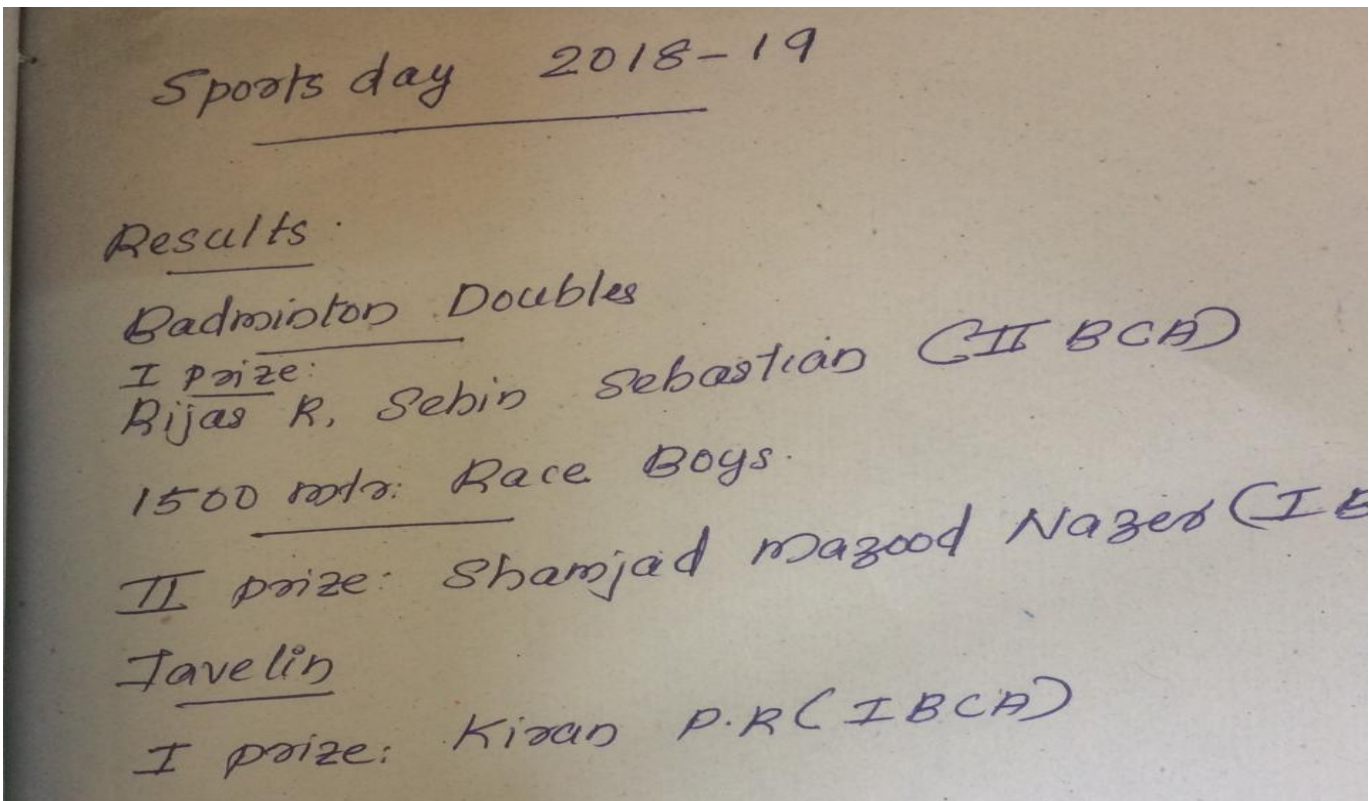 Sports day 2018-19
Results:
Badminton Doubles
I prize:
Rijas R, Sebin Sebastian (II BCA)
1500 mtr: Race Boys.
II prize: Shamjad Mazood Nazer (I B
Javelin
I prize: Kiran P.R (I BCA)